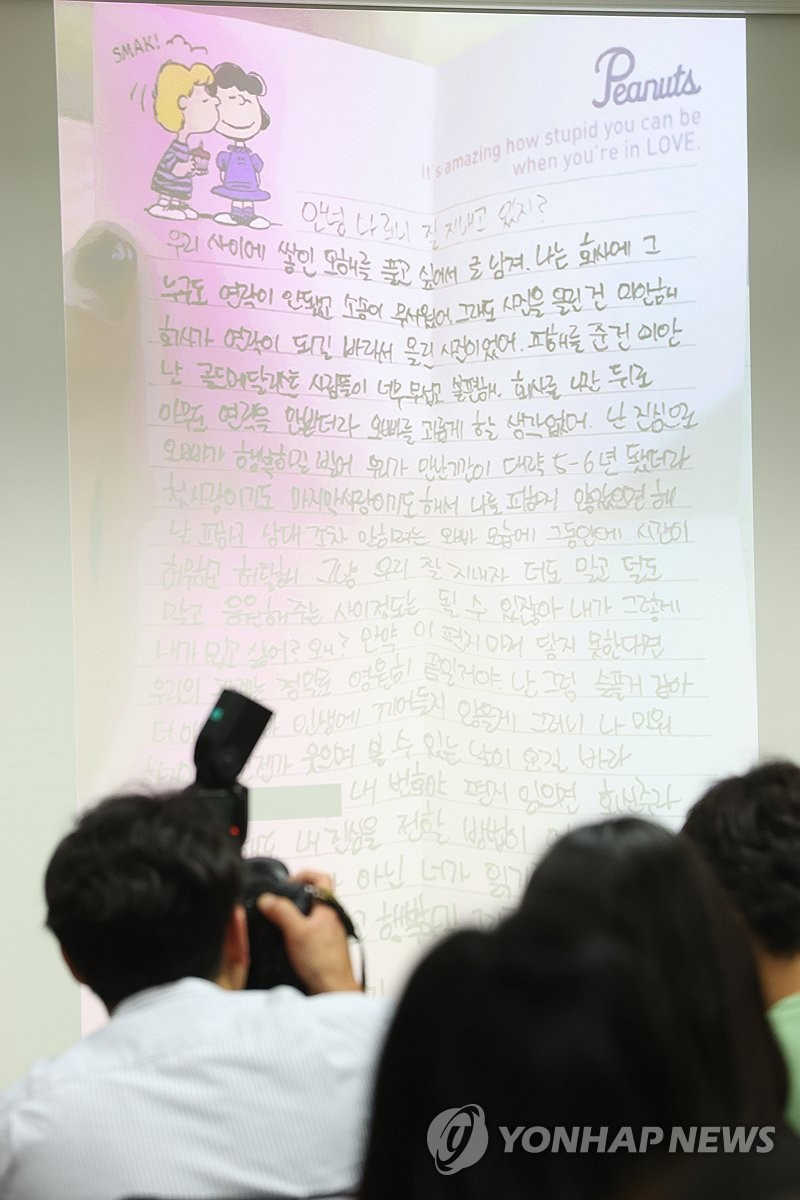 SMAK!
Peanuts
It's amazing how stupid you can be
when you're in LOVE.
안녕 나 잘 지내고 있지?
우리 사이에 쌓인 오해를 풀고 싶어서 글 남겨. 나는 회사에 그
누구도 연락이 안됐고 소송이 무서웠어. 그래도 사진을 올린 건 미안해
회사가 연락이 되길 바라서 올린 사진이었어. 피해를 준건 미안
난 골드메달리스트 사람들이 너무 무섭고 불편해. 회사를 나간 뒤로
아무도 연락을 안받더라 오빠를 괴롭게 할 생각없어. 난 진심으로
오빠가 행복하길 빌어 우리가 만난기간이 대략 5-6년 됐더라
첫사랑이기도 마지막사랑이기도해서 나를 피하지 않았으면 해
날 피하고 상대 조차 안하려는 오빠 모습에 그동안에 시간이
허무하고 허탈해 그냥 우리 잘 지내자 더도 말고 덜도
말고 응원해주는 사이정도는 될 수 있잖아 내가 그렇게
내가 밉고 싫어? 왜? 만약 이 편지마저 닿지 못한다면
우리의 관계는 정말로 영원히 끝일거야. 난 그럼 슬플거 같아
더 인생에 끼어들지 않을게 그러니 나 미워
웃으며 볼 수 있는 날이 오길 바라
내 번호야 편지 읽으면 회신주라
내 진심을 전할 방법이
아닌 너가 읽기
행복
YONHAP NEWS